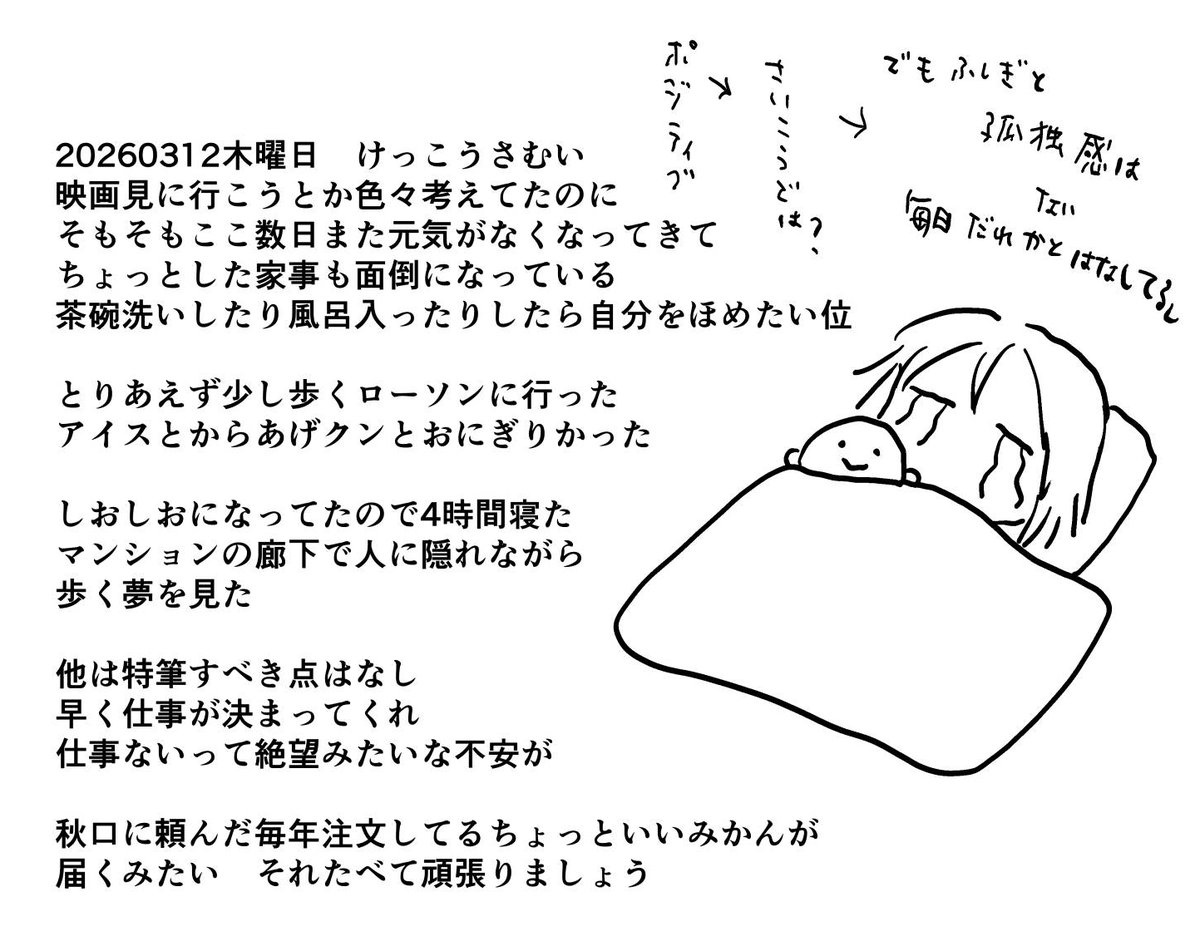 20260312木曜日　けっこうさむい
映画見に行こうとか色々考えてたのに
そもそもここ数日また元気がなくなってきて
ちょっとした家事も面倒になっている
茶碗洗いしたり風呂入ったりしたら自分をほめたい位
とりあえず少し歩くローソンに行った
アイスとからあげクンとおにぎりかった
しおしおになってたので4時間寝た
マンションの廊下で人に隠れながら
歩く夢を見た
他は特筆すべき点はなし
早く仕事が決まってくれ
仕事ないって絶望みたいな不安が
秋口に頼んだ毎年注文してるちょっといいみかんが
届くみたい　それたべて頑張りましょう
ポジティブ
→
さいこうどは?
→
でもふしぎと
孤独感は
ない
毎日だれかとはなしてるし